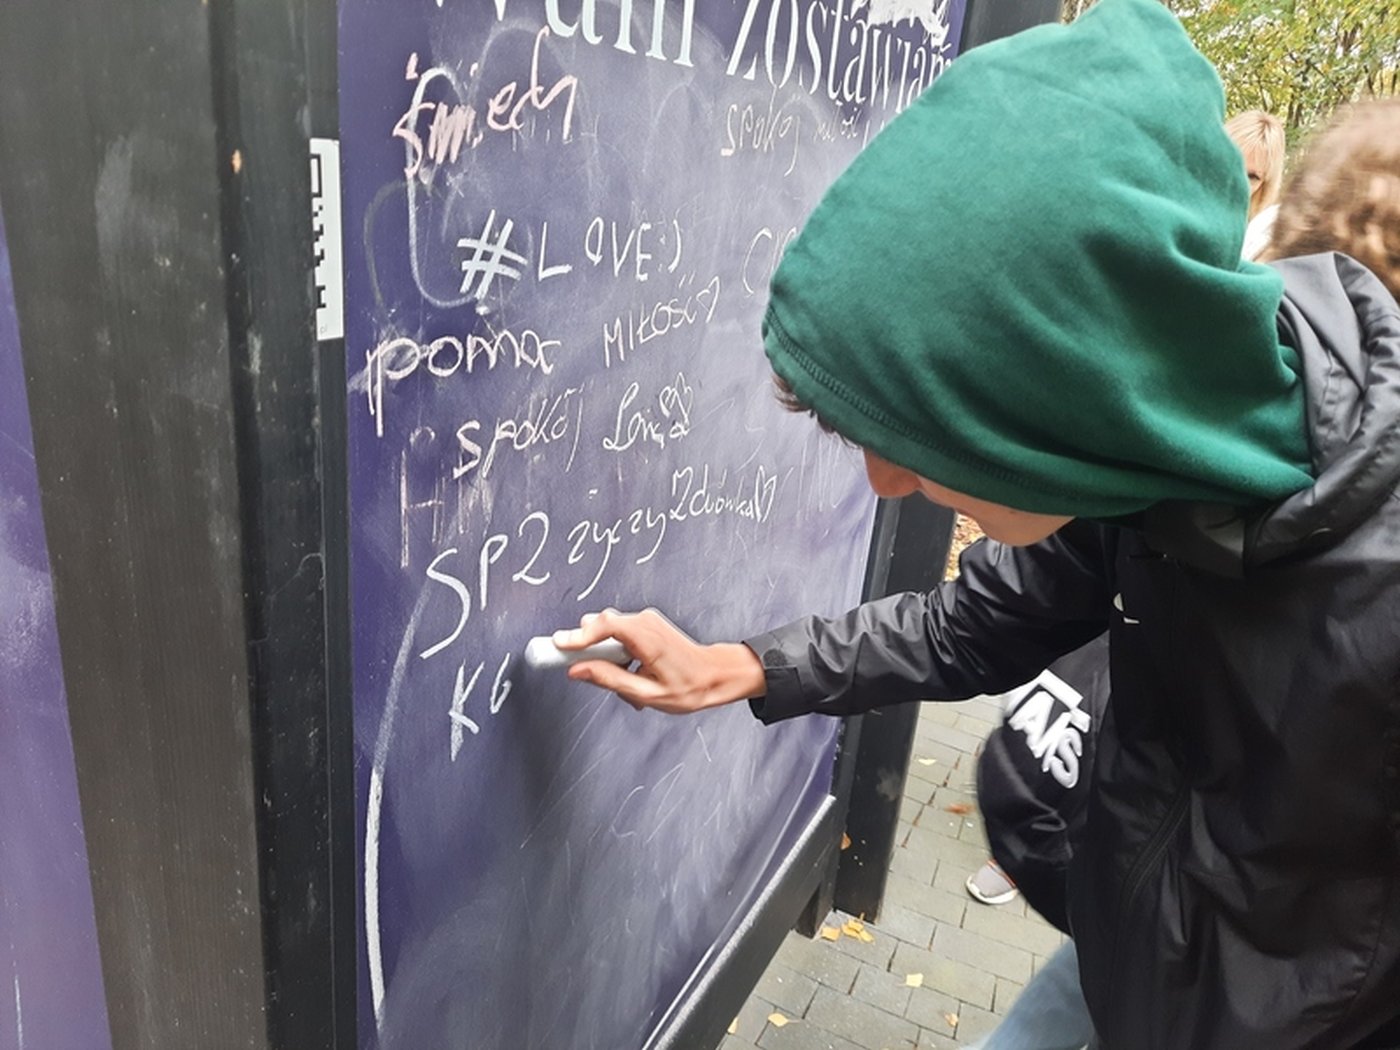 Wam zostawiam
śmiech
spokój miłość
#LOVE:)
pomoc MIŁOŚĆ
spokój
SP2 życzy zdrówka
KO
VANS